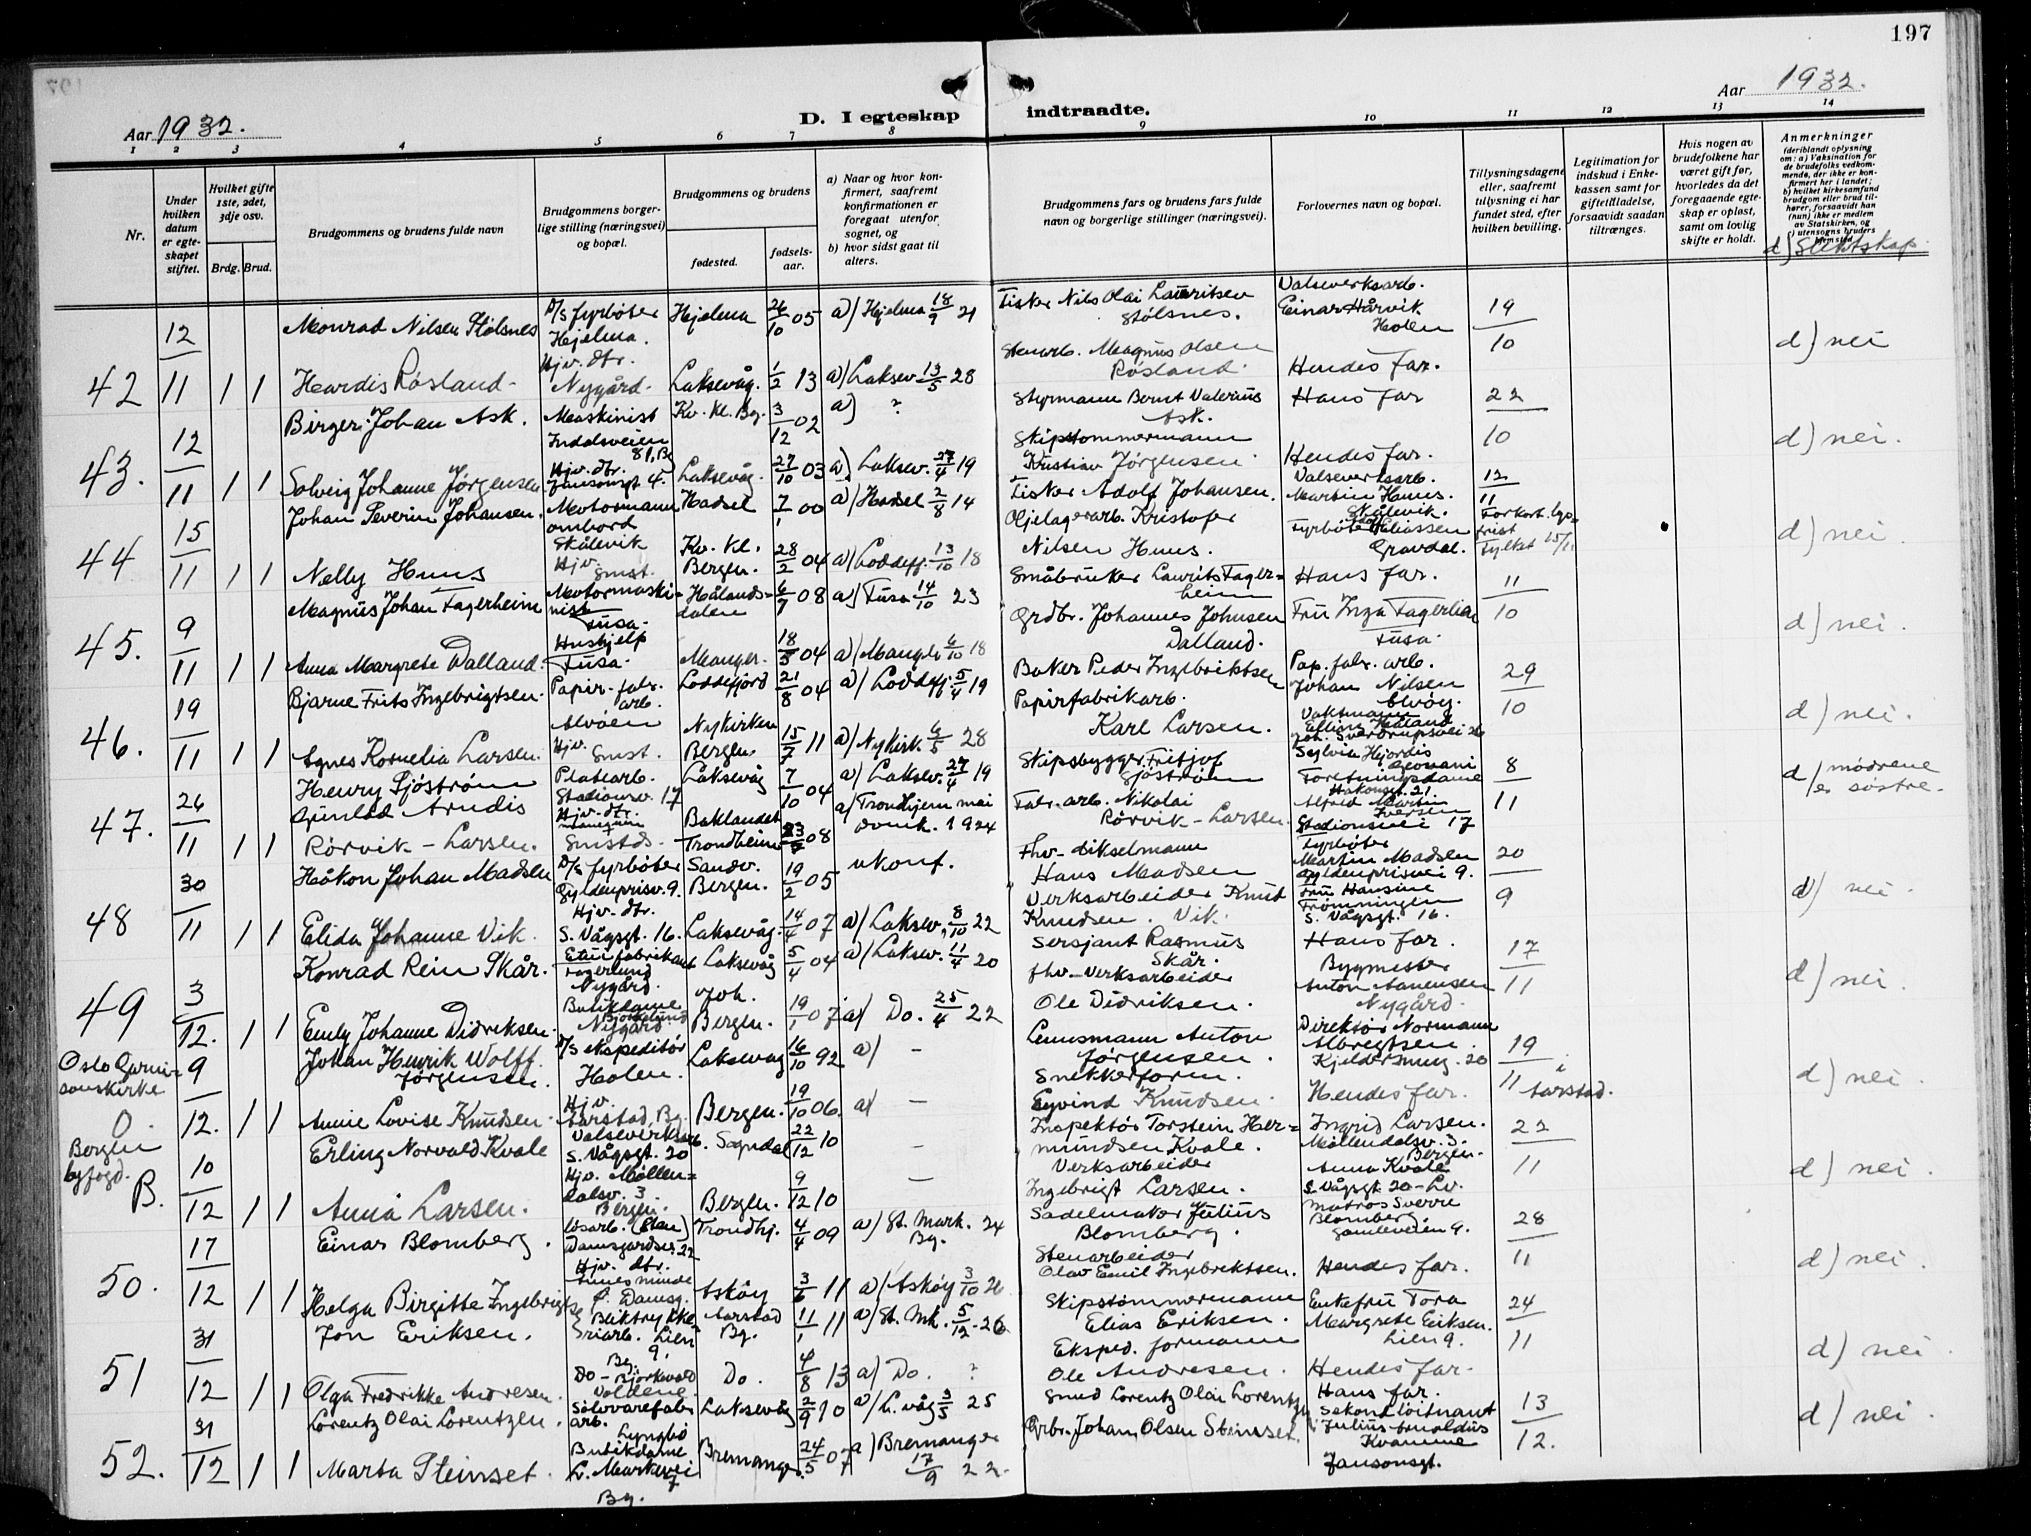 197
Aar 1932.
D. I egteskap indtraadte.
Aar 1932.
1 2 3 4 5 6 7 8 9 10 11 12 13 14
Nr.
Under hvilken datum er egteskapet stiftet.
Hvilket gifte 1ste, 2det, 3dje osv.
Brdg. Brud.
Brudgommens og brudens fulde navn
Brudgommens borgerlige stilling (næringsvei) og bopæl.
Brudgommens og brudens
fødested.
fødselsaar.
a) Naar og hvor konfirmert, saafremt konfirmationen er foregaat utenfor sognet, og
b) hvor sidst gaat til alters.
Brudgommens fars og brudens fars fulde navn og borgerlige stillinger (næringsvei).
Forlovernes navn og bopæl.
Tillysningsdagene eller, saafremt tillysning ei har fundet sted, efter hvilken bevilling.
Legitimation for indskud i Enkekassen samt for giftetilladelse, forsaavidt saadan tiltrænges.
Hvis nogen av brudefolkene har været gift før, hvorledes da det foregaaende egteskap er opløst, samt om lovlig skifte er holdt.
Anmerkninger
(deriblandt oplysning om: a) Vaksination for de brudefolks vedkommende, der ikke er konfirmert her i landet; b) hvilket kirkesamfund brudgom eller brud tilhører, forsaavidt han (hun) ikke er medlem av Statskirken, og c) utensogns bruders hjemsted
d) Slektskap
42 12/11 1 1
Monrad Nilsen Stølsnes D/s fyrbøter Hjelma. Hjelma 26/10 05 a) Hjelma 18/9 21 Fisker Nils Olai Lauritsen Stølsnes. Valseverksarb. Einar Hårvik Holen 19/10 d) nei
Herdis Røsland Hjv. dtr. Nygård. Laksevåg. 1/2 13 a) Laksev. 13/5 28 Stenarb. Magnus Olsen Røsland. Hendes far.
43. 12/11 1 1
Birger Johan Ask. Maskinist Indalsveien 81, Bg Kv. Kl. Bg. 3/12 02 a) ? Styrmann Bernt Valerius Ask. Hans far 22/10 d) nei.
Solveig Johanne Jørgensen Hjv. dtr. Jansonsgt 4. Laksevåg. 27/10 03 a) Laksev. 27/4 19 Skipstømmermann Kristian Jørgensen Hendes far.
44 15/11 1 1
Johan Severin Johansen. Motormann ombord Skålevik Hadsel 7/1 00 a) Hadsel 2/8 14 Fisker Adolf Johansen. Valseverksarb. Martin Huus. Skålevik. 12/11 Forkort. lys- frist Fylket 15/11 d) nei
Nelly Huus Hjv. Smst. Kv. Kl. Bergen. 28/2 04 a) Loddefj. 13/10 18 Oljelagerarb. Kristofer Nilsen Huus. Fyrbøter Eliassen Gravdal.
45. 9/11 1 1
Magnus Johan Fagerheim Motormaskinist Fusa. Hålandsdalen 6/7 08 a) Fusa 14/10 23 Småbruker Laurits Fagerheim Hans far. 11/10 d) nei.
Anna Margrete Dalland. Hushjelp Fusa. Manger. 18/5 04 a) Manger 6/10 18 Grdbr. Johannes Johnsen Dalland. Fru Inga Fagerheim Fusa.
46. 19/11 1 1
Bjarne Frits Ingebrigtsen. Papir-fabr. arb. Alvøen Loddefjord 21/8 04 a) Loddefj. 5/4 19 Baker Peder Ingebriktsen Pap. fabr. arb. Johan Nilsen Alvøy. 29/10 d) nei.
Agnes Kornelia Larsen. Hjv. Smst. Nykirken Bergen. 15/7 11 a) Nykirk. 6/5 28 Papirfabrikarb. Karl Larsen. Vaktmann Elling Håland Joh. Sverdrupsvei 26
47. 26/11 1 1
Henry Sjöström Platearb. Stadionsv. 17 Laksevåg 7/10 04 a) Laksev. 27/4 19 Skipsbygger Fritjof Sjöström Sylvia Hjørdis Geovani Foretningsdame Håkonsgt. 21. 8/11 d) mødrene er søstre.
Gunlød Arndis Rörvik - Larsen. Hjv. dtr. Smstds. Baklandet Trondheim 08 a) Trondhjem mai domk. 1924 Fabr. arb. Nikolai Rörvik - Larsen. Alfred Martin Iversen Stadionsvei 17
48 30/11 1 1
Håkon Johan Madsen D/s fyrbøter Gyldenprisv. 9. Sandv. Bergen. 19/2 05 ukonf. Fhv. dikselmann Hans Madsen Fyrbøter Martin Madsen Gyldenprisvei 9. 20/9 d) nei.
Elida Johanne Vik. Hjv. dtr. S. Vågsgt. 16. Laksevåg. 14/4 07 a) Laksev. 8/10 22 Verksarbeider Knut Knudsen Vik. Fru Hansine Trømningen S. Vågsgt. 16.
49 3/12. 1 1
Konrad Rein Skår. Etuifabrikant Fagerlund Nygård. Laksevåg 5/4 04 a) Laksev. 11/4 20 Sersjant Rasmus Skår. Hans far. 17/11 d) nei.
Emly Johanne Didriksen. Butikdame Nygård Joh. Bergen. 19/1 07 a) Do. 25/4 22 fhv-verksarbeider Ole Didriksen. Bygmester Anton Aanensen Nygård.
Oslo Garnisonskirke O. 9/12. 1 1
Johan Henrik Wolff Jørgensen. D/s ekspeditør Holen. Laksevåg 16/10 92 a) - Lensmann Anton Jørgensen. Direktør Normann Albregtsen. Kjeldersmug. 20 19/11 i Aarstad. d) nei.
Annie Lovise Knudsen. Hjv. Aarstad, Bg. Bergen. 19/10 06. a) - Snekkerform. Eyvind Knudsen. Hendes far.
Bergen byfogd. B. 10/12 1 1
Erling Norvald Kvale Valseverksarb. S. Vågsgt. 20 Sogndal 22/12 10 - Inspektør Torstein Hermundsen Kvale. Ingrid Larsen. Møllendalsv. 3. Bergen. 22/11 d) nei.
Anna Larsen. Hjv. Møllendalsv. 3. Bergen. Bergen. 9/12 10 - Verksarbeider Ingebrigt Larsen. Anna Kvale S. Vågsgt 20 - Lv.
50. 17/12 1 1
Einar Blomberg. Damsgårdsv. 22 Trondhj. 4/4 09 a) St. Mark. Bg. 24 Sadelmaker Julius Blomberg. Matros Sverre Blomberg. Gamleveien 9. 28/11 d) nei.
Helga Birgitte Ingebrigtsen Hjv. dtr. Annes minde Ø. Damsg. Askøy 3/6 11 a) Askøy 3/10 26 Stenarbeider Olav Emil Ingebriktsen. Hendes far.
51 31/12 1 1
Jon Eriksen. Boktrykkeriarb. Lien 9. Bg. Aarstad Bg. 11/1 11 a) St. Mk. 5/12. 26 Skipstømmermann Elias Eriksen. Enkefru Tora Margrete Eriksen. Lien 9. 24/11 d) nei.
Olga Fredrikke Andresen. Do - Bjørkvold Do. 4/8 13 a) Do. ? Eksped. formann Ole Andresen. Hendes far.
52. 31/12 1 1
Lorentz Olai Lorentzen. Sølvvarefabr. arb. Lyngbø Laksevåg 2/9 10 a) L. våg 3/5 25 Smed Lorentz Olai Lorentzen Hans far. 13/12. d) nei.
Marta Steinset. Butikdame L. Markevei 7 Bg. Bremanger. 24/5 07 a) Bremanger 17/9 22. Grbr. Johan Olsen Steinset. Sekondløitnant Julius Arnoldus Kvamme Jansonsgt.